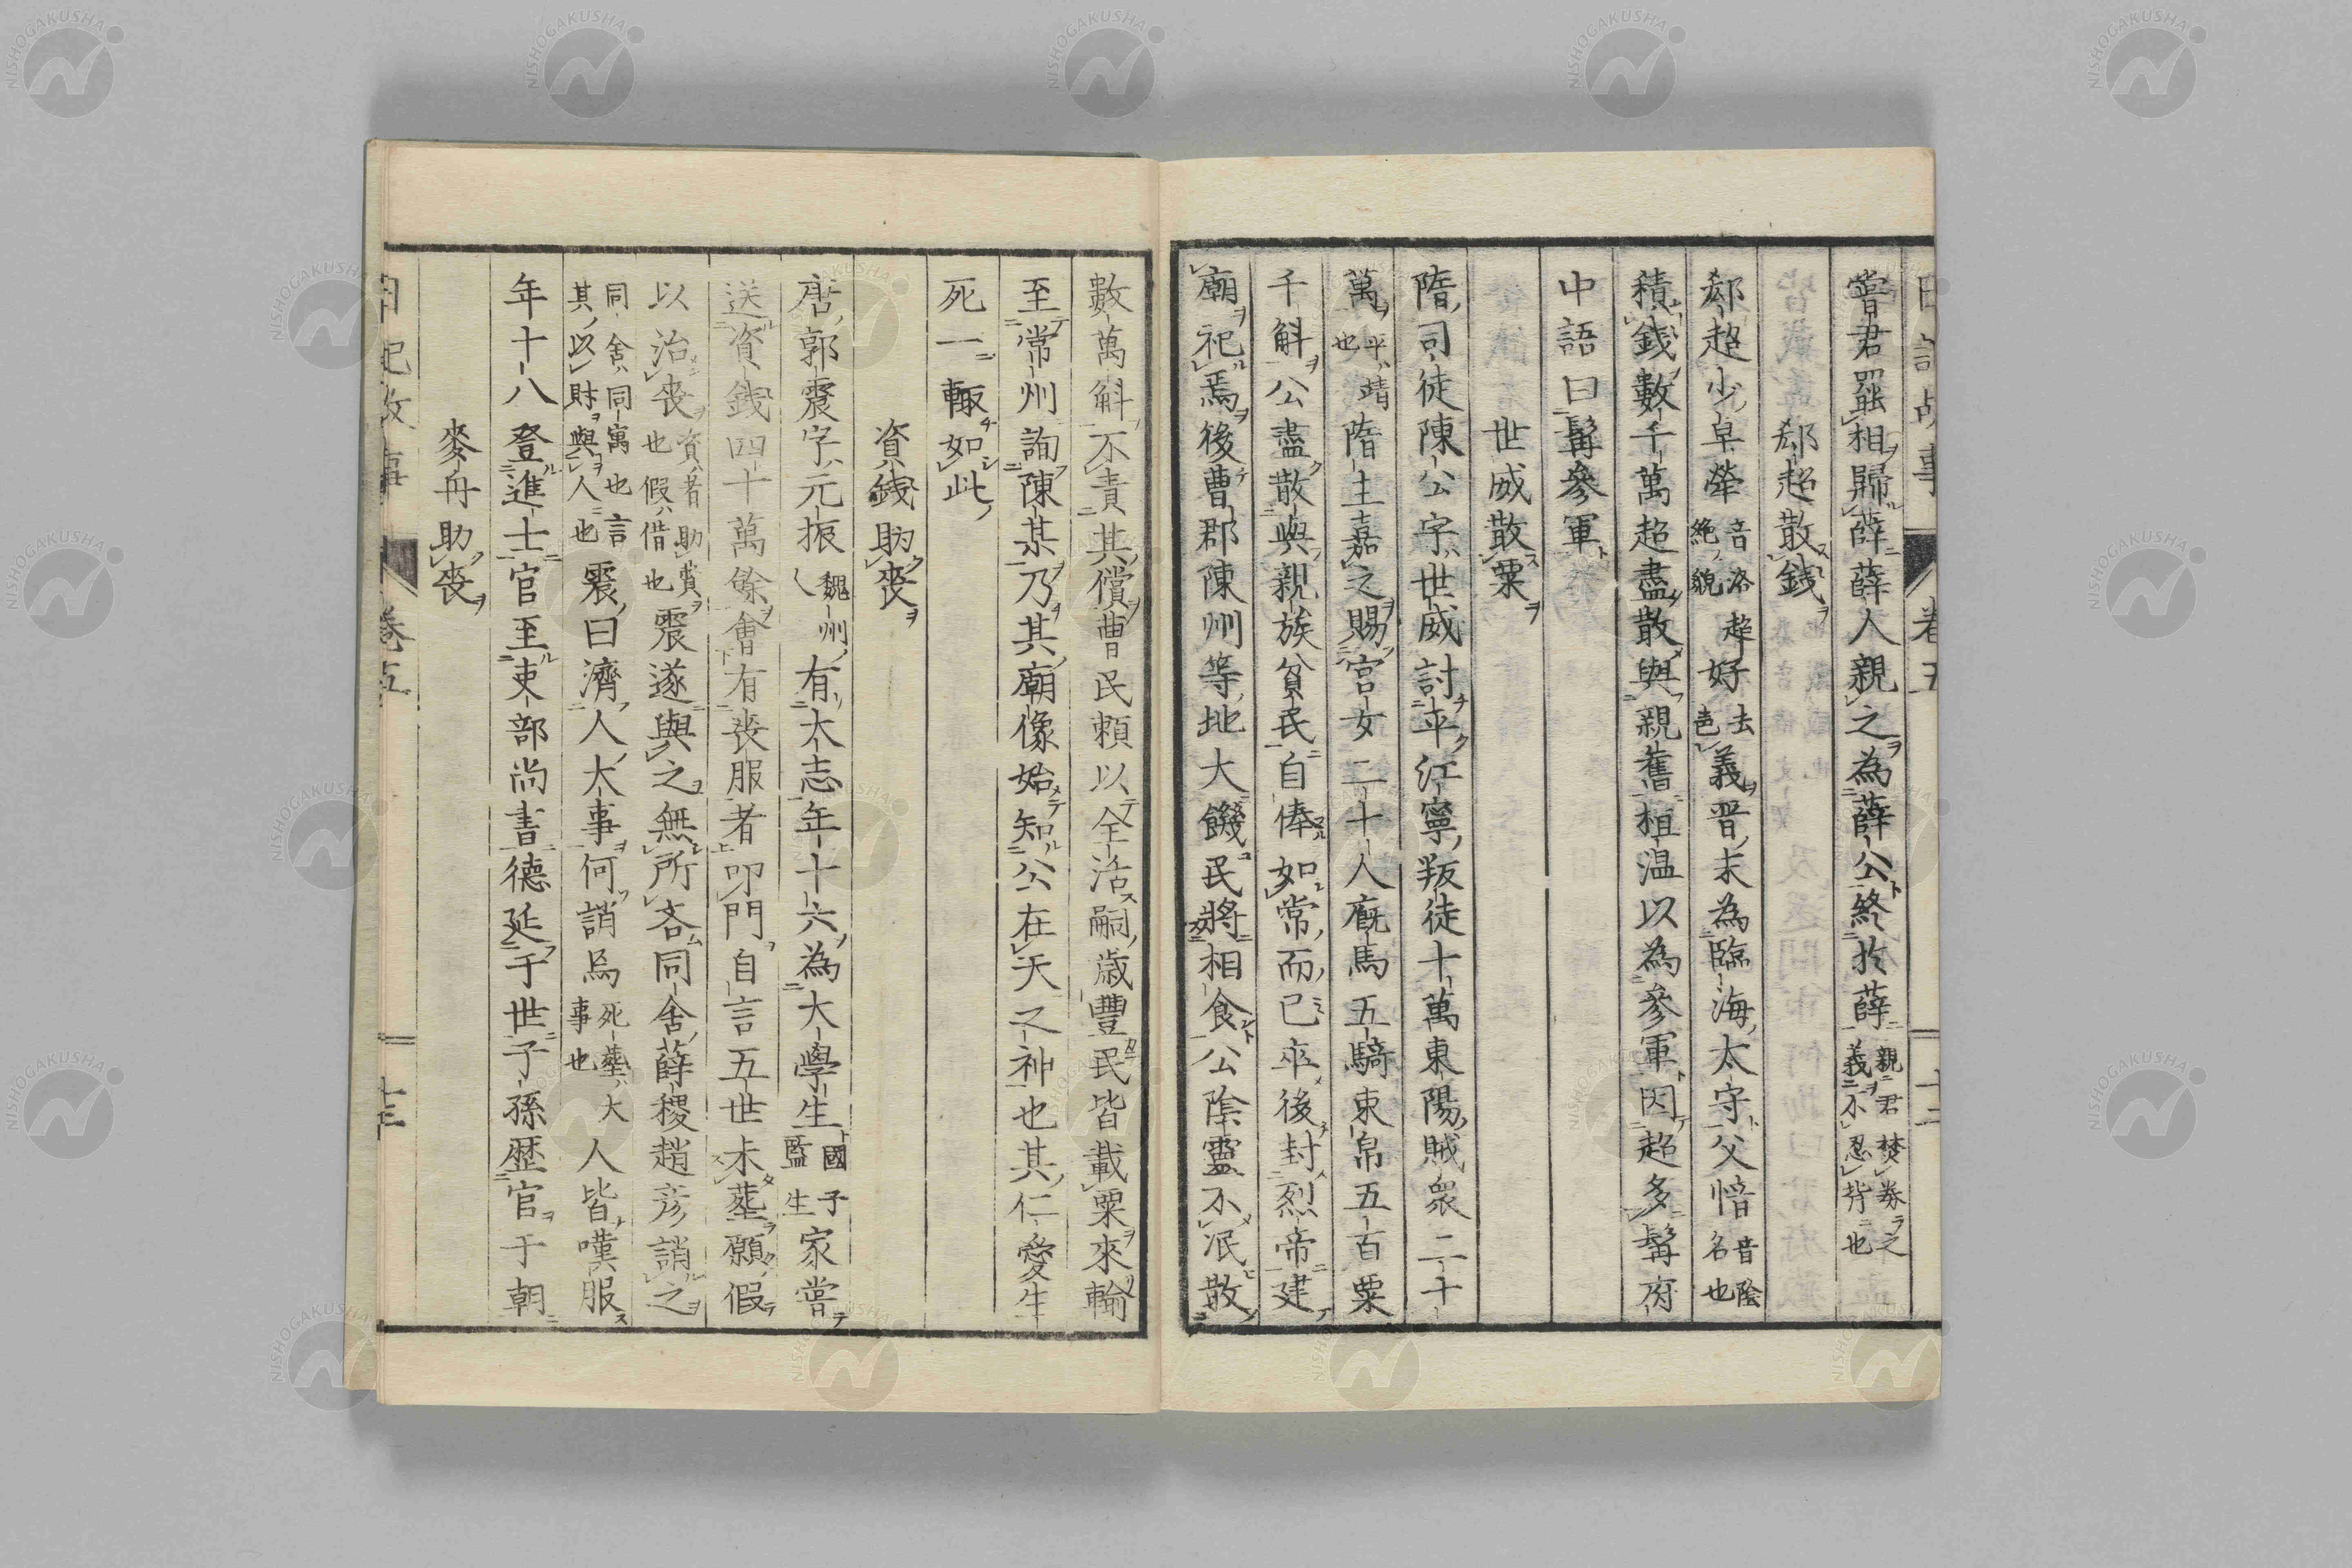 嘗君罷相歸薛薛人親之為薛公終於薛親君焚券之義不忍背也
郄超散錢
郄超少卓犖音洛絶貌超好去色義晋末為臨海太守父愔音陰名也
積錢數千萬超盡散與親舊桓温以為參軍因超多髯府
中語曰髯參軍
世威散粟
隋司徒陳公字世威討平江寧叛徒十萬東陽賊衆二十
萬平靖也隋主嘉之賜宮女二十人厩馬五騎束帛五百粟
千斛公盡散與親族貧民自俸如常而已卒後封烈帝建
廟祀焉後曹郡陳州等地大饑民將相食公陰靈不泯散
數萬斛不責其償曹民賴以全活嗣歳豐民皆載粟來輸
至常州詢陳某乃其廟像始知公在天之神也其仁愛生
死一輙如此
資錢助喪
唐郭震字元振魏州人有大志年十六為大學生國子監生家嘗
送資錢四十萬餘會有喪服者叩門自言五世未塟願假
以治喪資者助貲也假借也震遂與之無所吝同舍薛稷趙彦誚之
同舍同寓也言其以財與人也震曰濟人大事何誚焉死塟大事也人皆嘆服
年十八登進士官至吏部尚書德延于世子孫歴官于朝
麥舟助喪
日記故事 卷五 十三